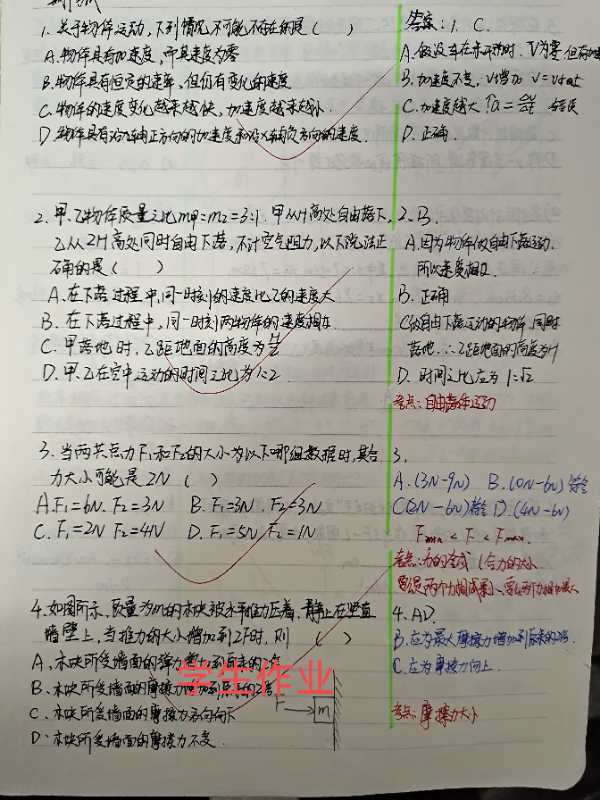 1. 关于物体运动,下列情况不可能存在的是( )
A. 物体具有加速度,而其速度为零
B. 物体具有恒定的速率,但仍有变化的速度
C. 物体的速度变化越来越快,加速度越来越小
D. 物体具有沿x轴正方向的加速度和沿x轴负方向的速度.
2. 甲、乙物体质量之比m甲:m乙=3:1. 甲从H高处自由落下,
乙从2H高处同时自由下落,不计空气阻力,以下说法正
确的是( )
A. 在下落过程中,同一时刻甲的速度比乙的速度大
B. 在下落过程中,同一时刻两物体的速度相等.
C. 甲落地时,乙距地面的高度为H/2
D. 甲、乙在空中运动的时间之比为1:2.
3. 当两共点力F₁和F₂的大小为以下哪组数据时,其合
力大小可能是2N( )
A. F₁=6N. F₂=3N B. F₁=3N. F₂=3N
C. F₁=2N F₂=4N D. F₁=5N F₂=1N
4. 如图所示,质量为m的木块被水平推力压着,静止在竖直
墙壁上,当推力的大小增加到2F时,则( )
A. 木块所受墙面的弹力增加到原来的2倍
B. 木块所受墙面的摩擦力增加到原来的2倍
C. 木块所受墙面的摩擦力方向向下
D. 木块所受墙面的摩擦力不变.
F m
学生作业
答案: 1. C.
A. 假设车在水平时. V为零,但有加速
B. 加速度不变,
C. 加速度越大
D. 正确.
2. B.
A. 因为物体做自由下落运动.
所以速度相等
B. 正确
C. 做自由下落运动的物体,同时
落地,∴乙距地面的高度为H
D. 时间之比应为1:√2
考点: 自由落体运动
3.
A. (3N-9N) B. (0N-6N)符合
C(2N-6N)符合 D. (4N-6N)
Fmin < F < Fmax.
考点: 力的合成(合力的大小
4. AD.
B. 应为最大摩擦力增加到原来的2倍.
C. 应为摩擦力向上.
考点: 摩擦力大小